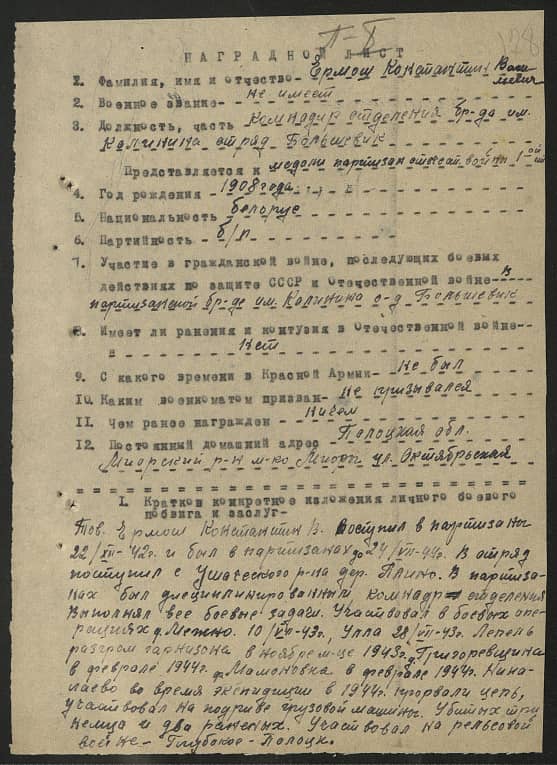 П-Б
128
НАГРАДНОЙ ЛИСТ
1. Фамилия, имя и отчество - Ермош Константин Васильевич
2. Военное звание - не имеет
3. Должность, часть Командир отделения бр-да им.
Калинина отряд Большевик
Представляется к медали партизан отечест. войны I-ой ст
4. Год рождения - 1908 года
5. Национальность белорус
6. Партийность - б/п
7. Участие в гражданской войне, последующих боевых
действиях по защите СССР и Отечественной войне - в
партизанской бр-де им. Калинина о-д Большевик
8. Имеет ли ранения и контузия в Отечественной войне -
Нет
9. С какого времени в Красной Армии - не был
10. Каким военкоматом призван - не призывался
11. Чем ранее награжден - ничем
12. Постоянный домашний адрес Полоцкая обл.
Миорский р-н м-ко Миоры ул. Октябрьская
I. Краткое конкретное изложения личного боевого
подвига и заслуг -
Тов. Ермош Константин В. поступил в партизаны
22/VII-42г. и был в партизанах до 24/VII-44г. В отряд
поступил с Ушачского р-на дер. Плино. В партиза-
нах был дисциплинированный, командир отделения
выполнял все боевые задачи. Участвовал в боевых опе-
рациях д. Межно. 10/VII-43г, Улла 28/VII-43г. Лепель
разгром гарнизона в ноябре м-це 1943г. д. Григоревщина
в феврале 1944г. д. Мамоновка в феврале 1944г. Нико-
лаево во время экспедиции в 1944г. прорвали цепь,
участвовал на подриве грузовой машины. Убитых три
немца и два раненых. Участвовал на рельсовой
войне - Глубокое - Полоцк.